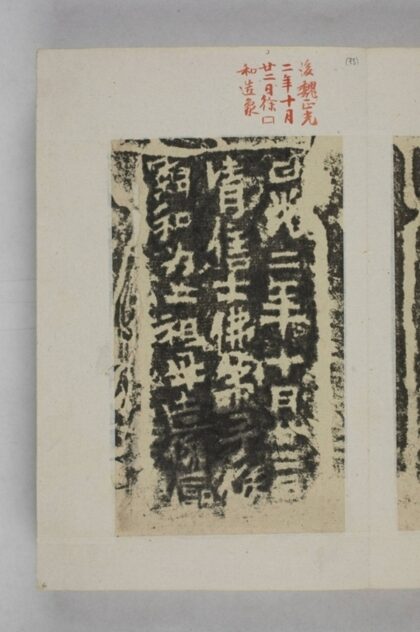 後魏正光
二年十月
廿二日徐口
和造象
(75)
正光二年十月廿二日
清信士佛弟子徐
和为亡祖母